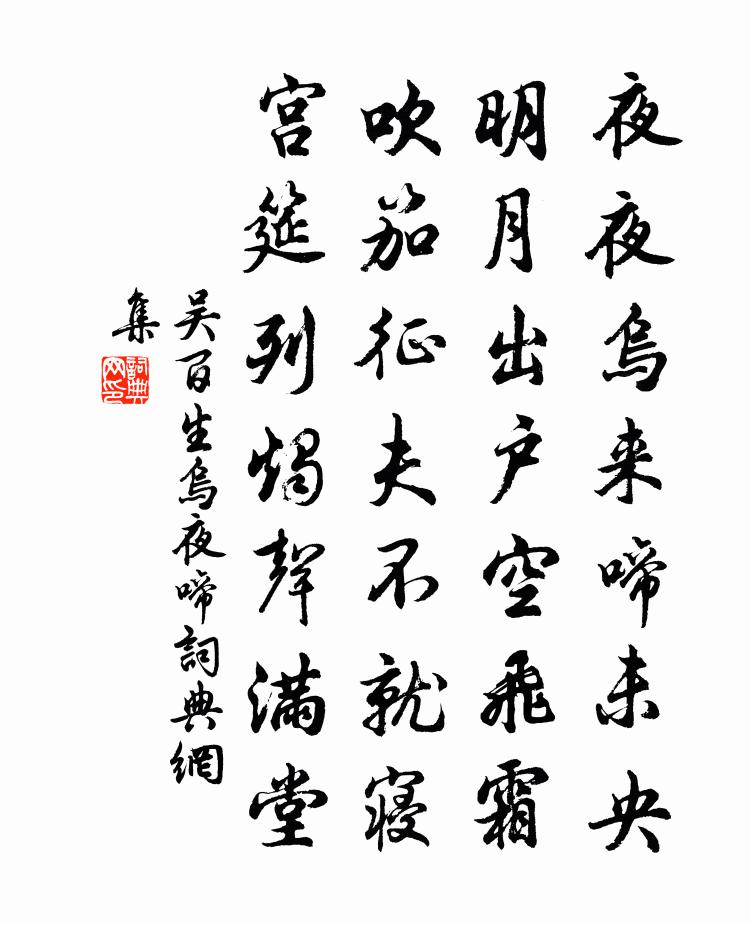 夜夜烏来啼未央
明月出户空飛霜
吹笳征夫不就寝
宫筵列燭聲满堂
吴百生烏夜啼詞典網
集
詞典
网印